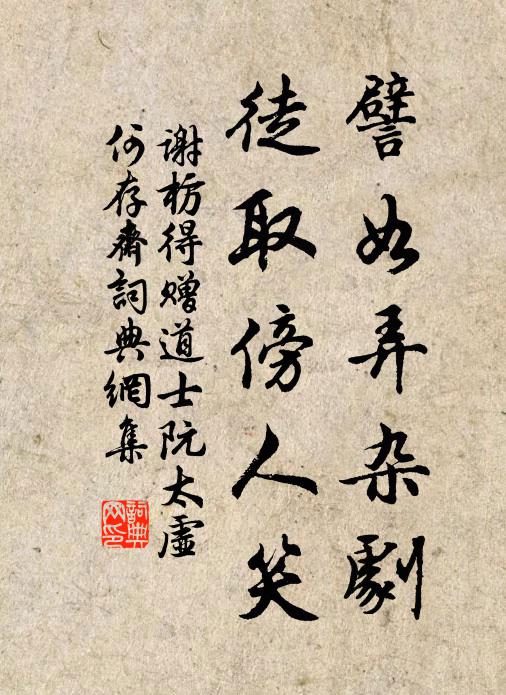 譬如弄杂劇
徒取傍人笑
谢枋得赠道士阮太虚
何存齋詞典網集
詞典网印